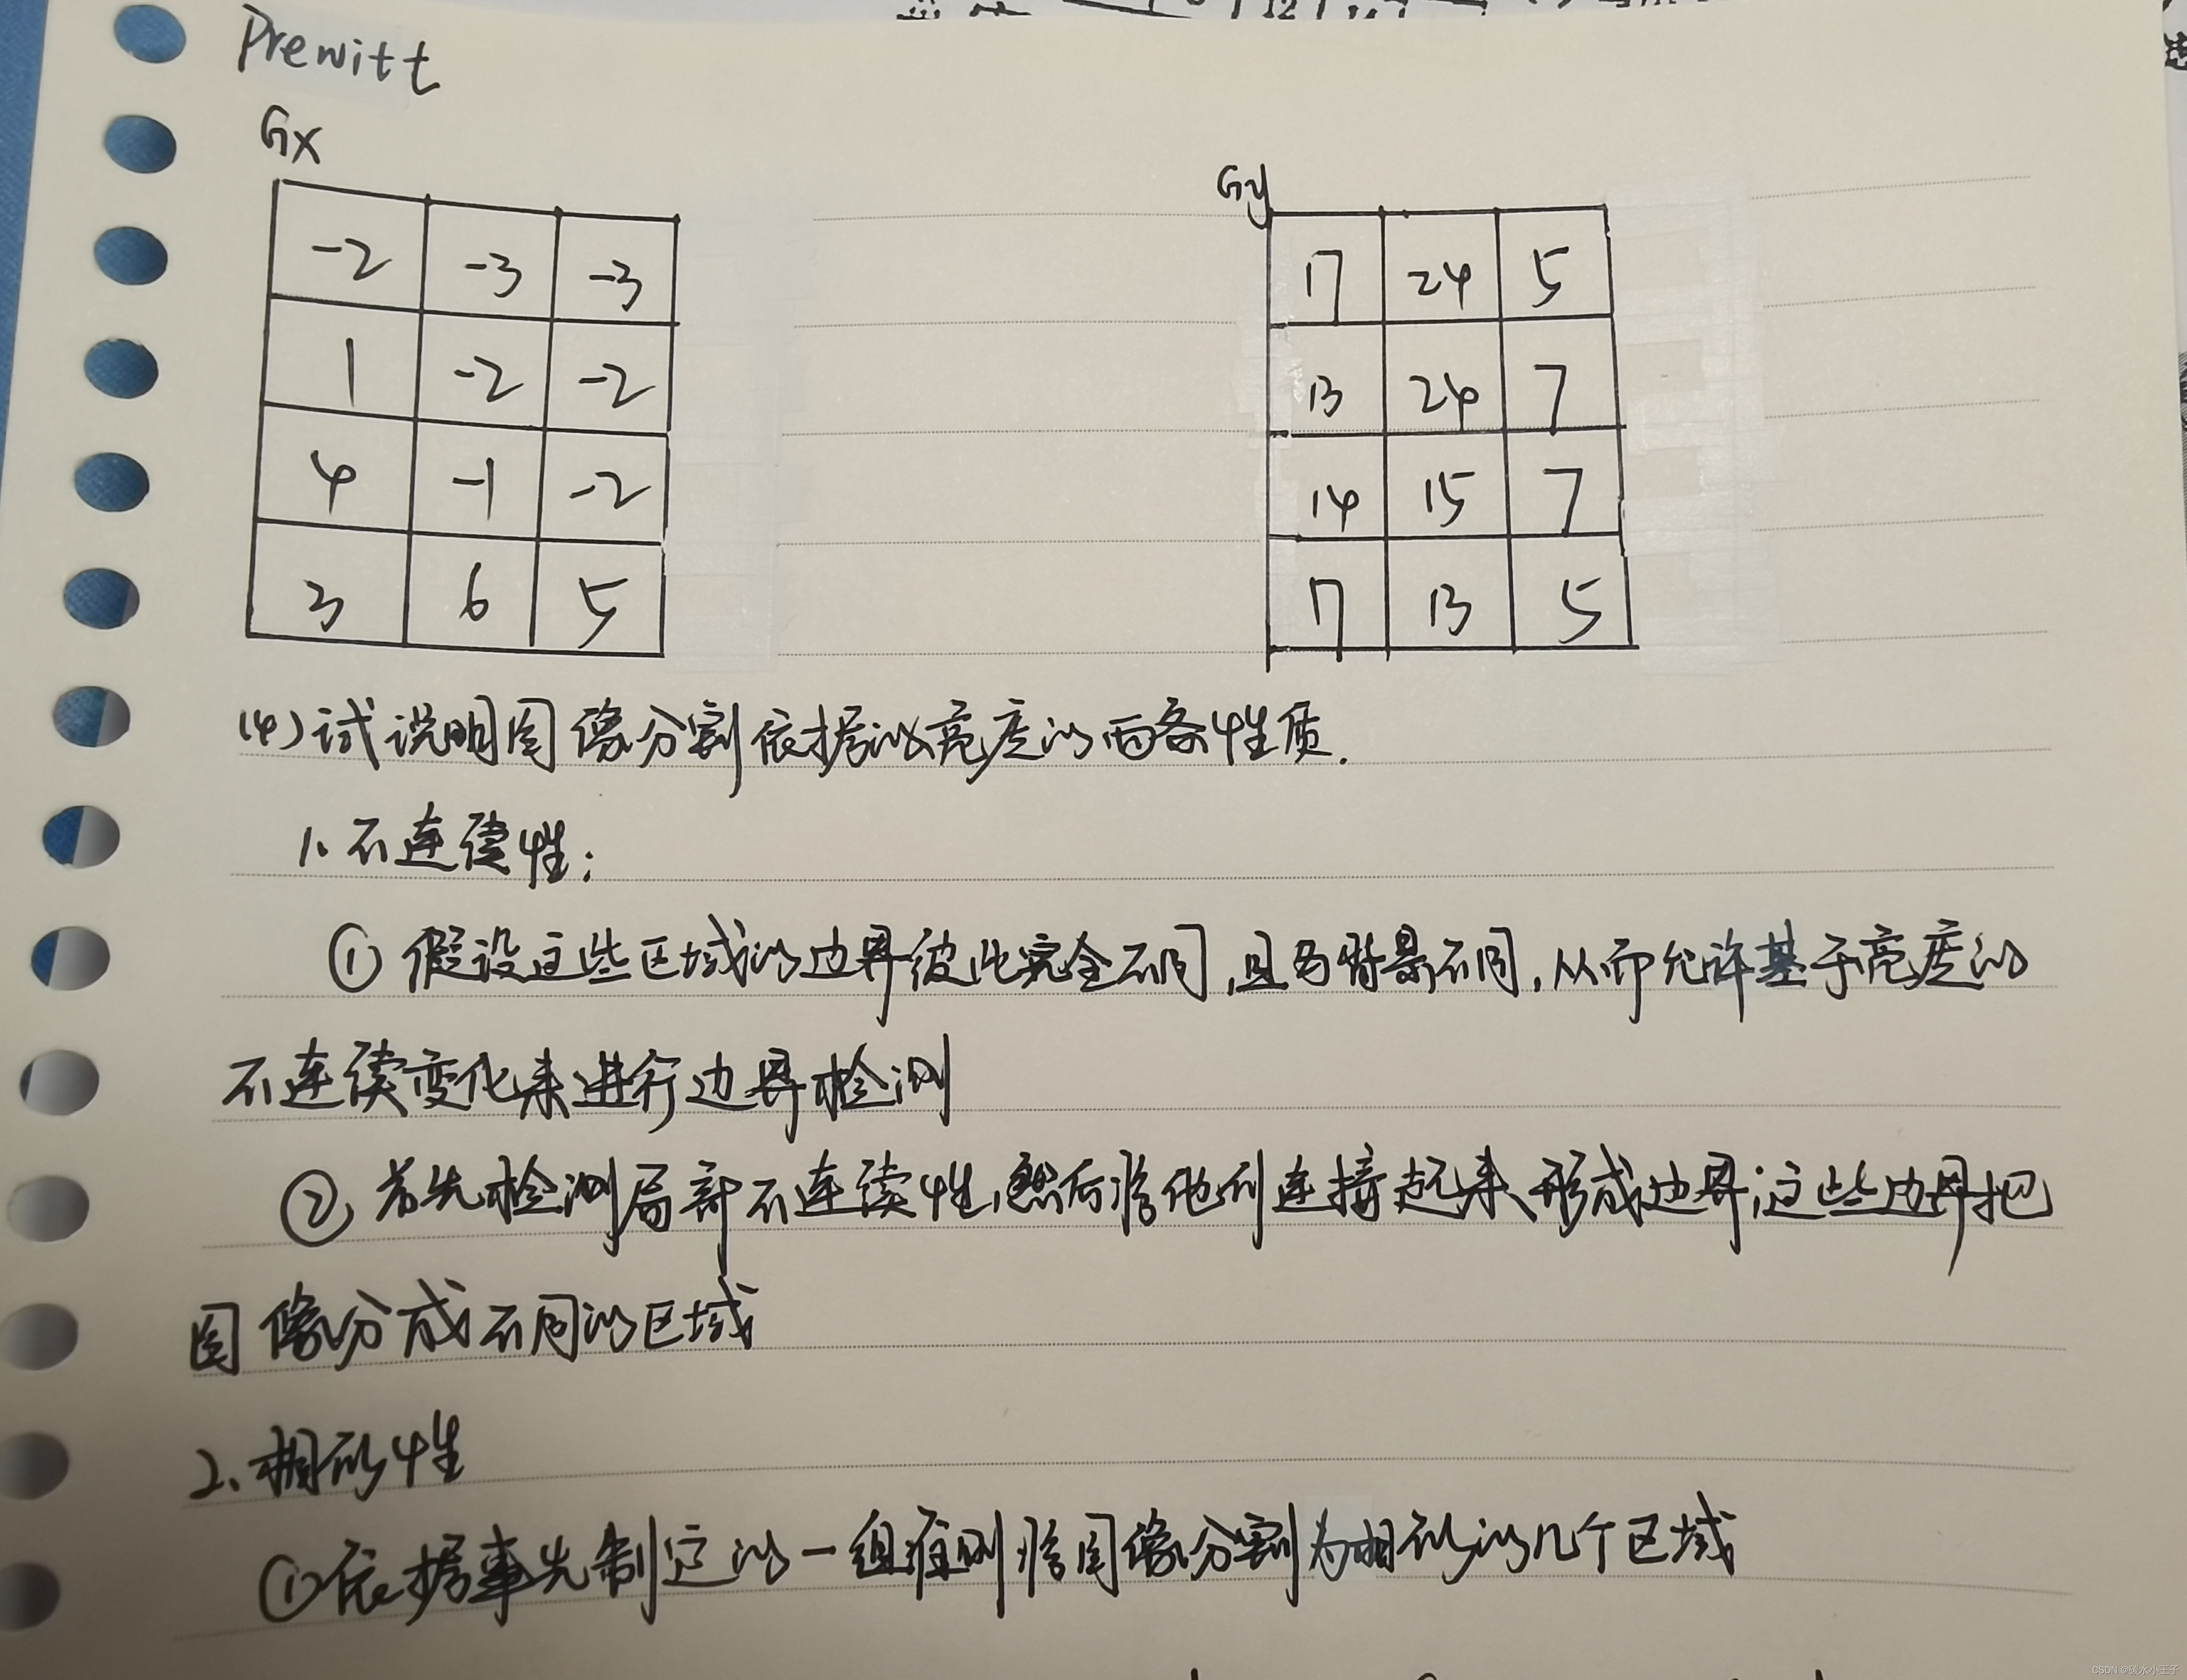 Prewitt
Gx
Gy
-2 -3 -3
17 24 5
1 -2 -2
13 24 7
4 -1 -2
14 15 7
3 6 5
17 13 5
(4)试说明图像分割依据的亮度的两条性质.
1.不连续性:
①假设这些区域的边界彼此完全不同,且与背景不同,从而允许基于亮度的
不连续变化来进行边界检测
②首先检测局部不连续性,然后将他们连接起来,形成边界;这些边界把
图像分成不同的区域
2、相似性
①依据事先制定的一组准则将图像分割为相似的几个区域
CSDN @碳水小王子